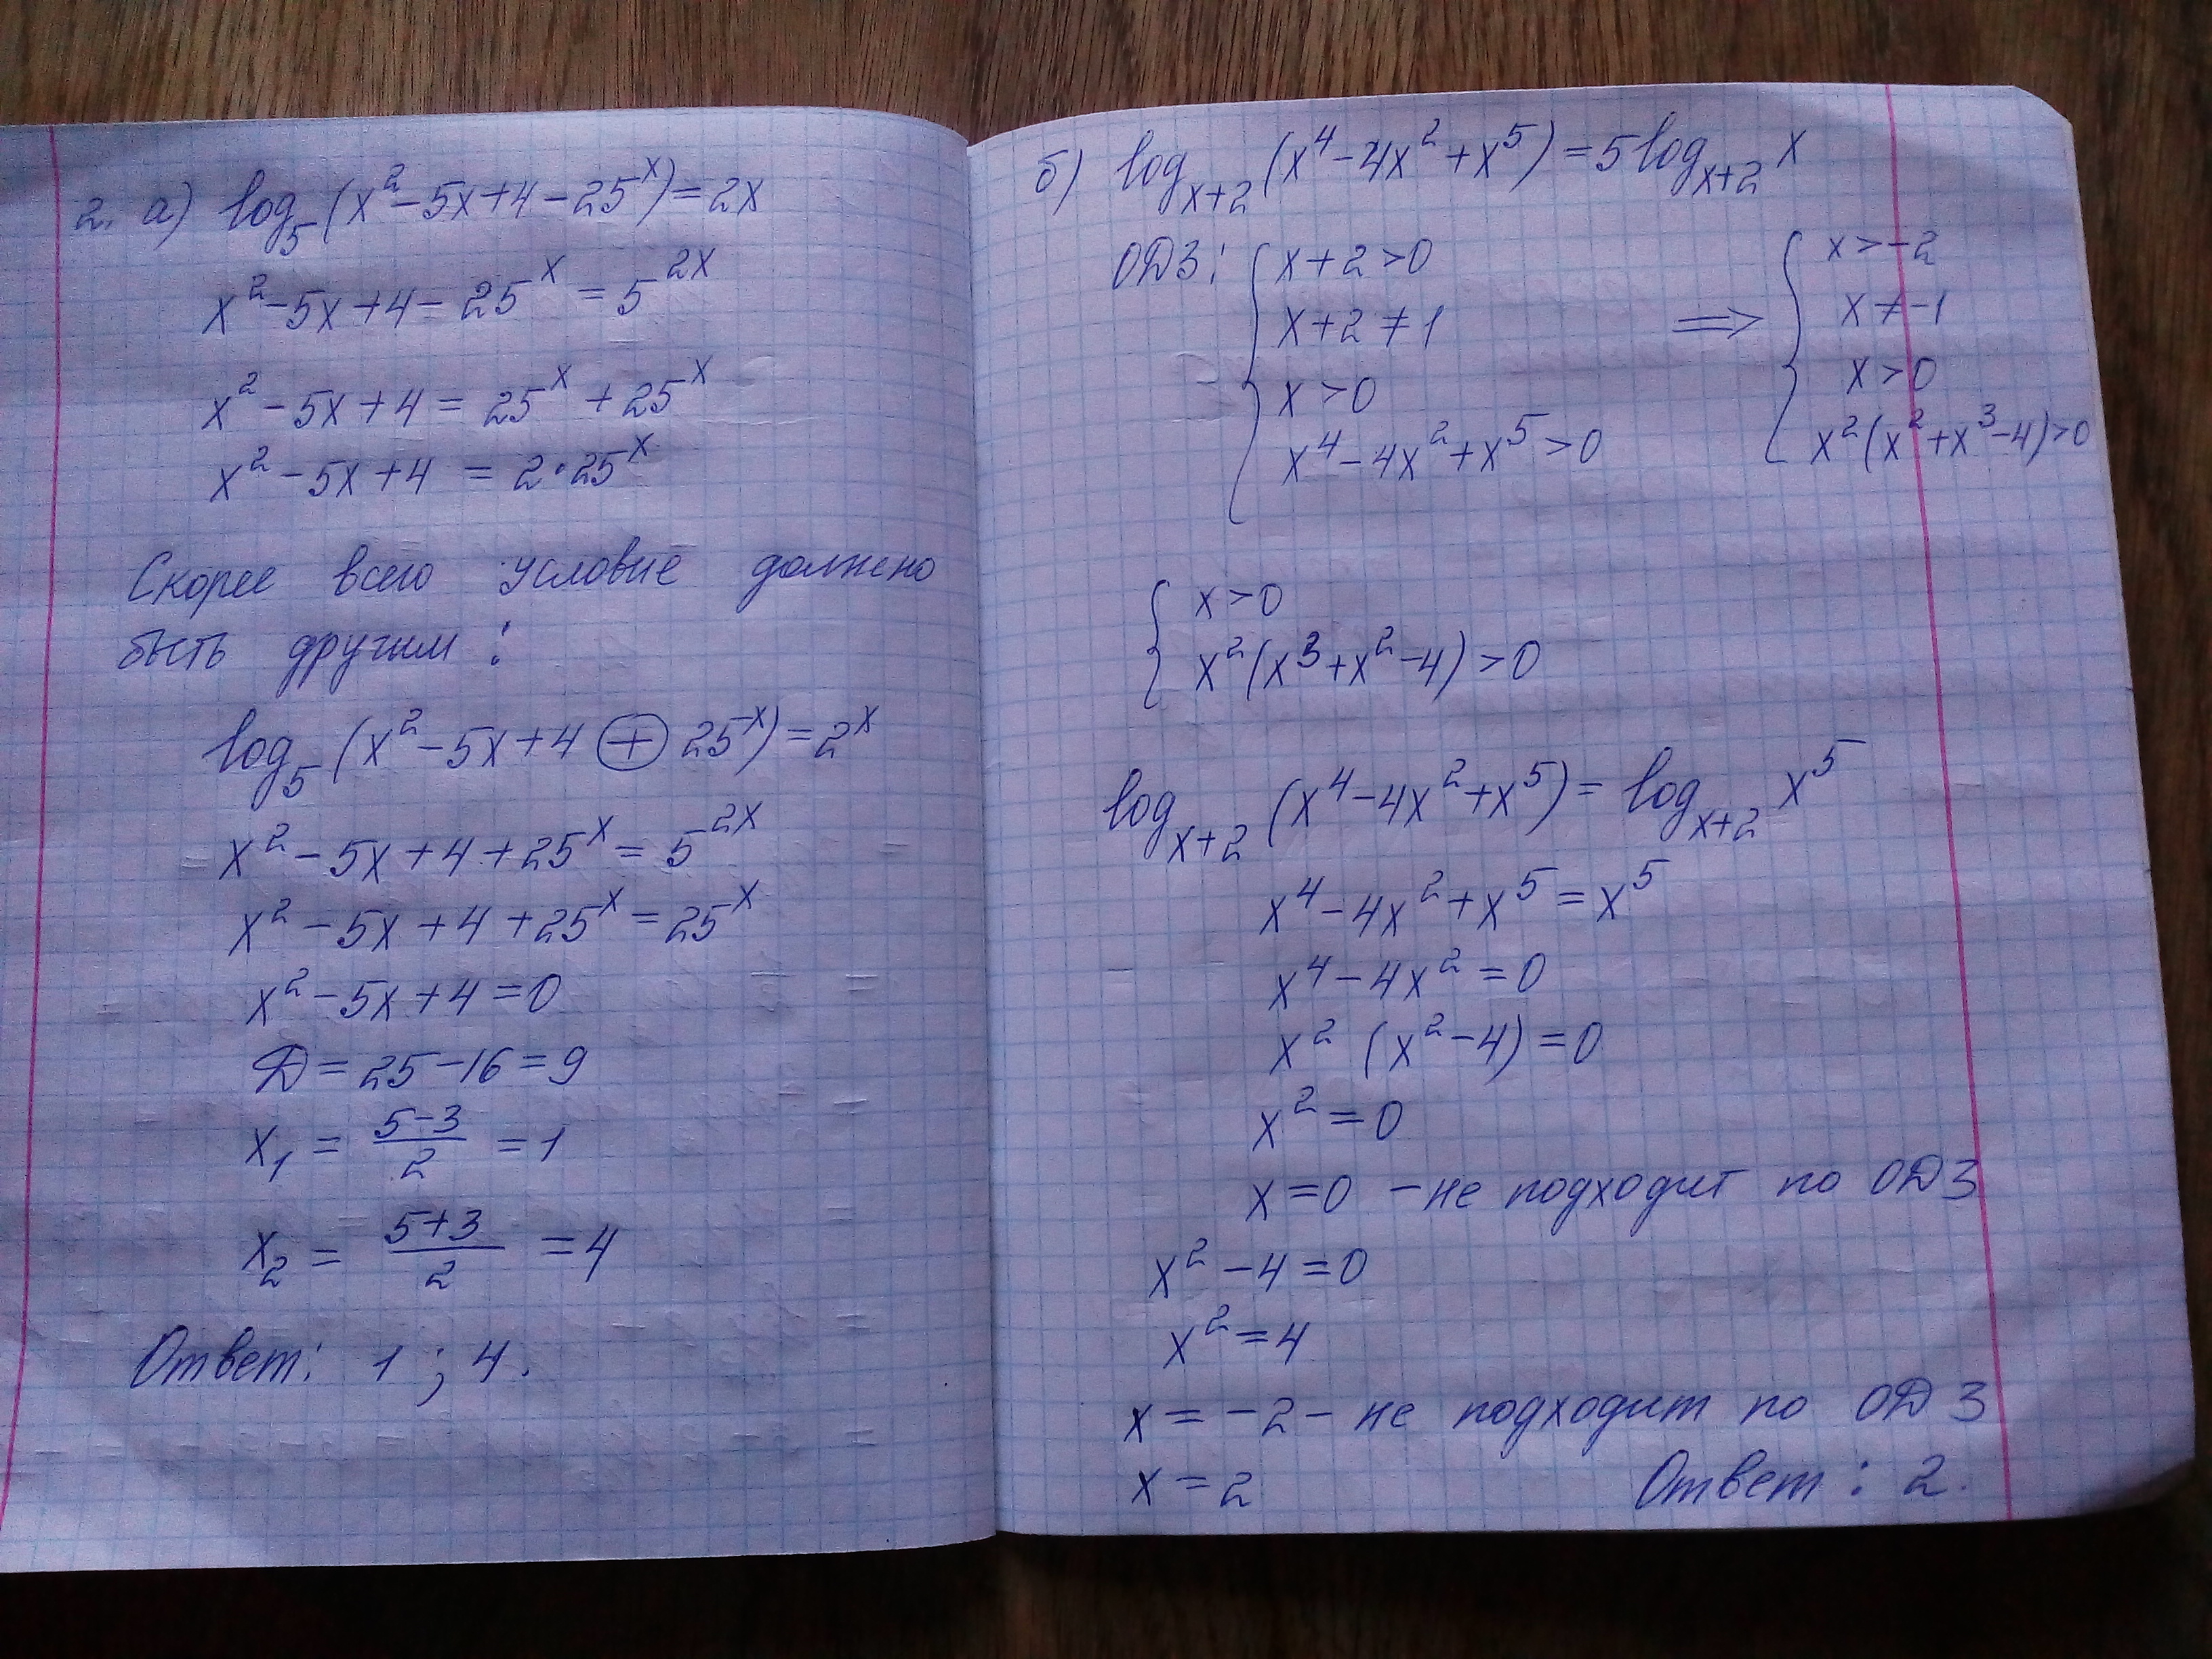 2. а) log₅(x²-5x+4-25ˣ)=2x
x²-5x+4-25ˣ=5²ˣ
x²-5x+4=25ˣ+25ˣ
x²-5x+4=2·25ˣ
Скорее всего условие должно
быть другим:
log₅(x²-5x+4⊕25ˣ)=2ˣ
x²-5x+4+25ˣ=5²ˣ
x²-5x+4+25ˣ=25ˣ
x²-5x+4=0
D=25-16=9
x₁=(5-3)/2=1
x₂=(5+3)/2=4
Ответ: 1; 4.
б) logₓ₊₂(x⁴-4x²+x⁵)=5logₓ₊₂x
ОДЗ: { x+2>0 ⟹ { x>-2
x+2≠1 x≠-1
x>0 x>0
x⁴-4x²+x⁵>0 x²(x²+x³-4)>0
{ x>0
x²(x³+x²-4)>0
logₓ₊₂(x⁴-4x²+x⁵)=logₓ₊₂x⁵
x⁴-4x²+x⁵=x⁵
x⁴-4x²=0
x²(x²-4)=0
x²=0
x=0 - не подходит по ОДЗ
x²-4=0
x²=4
x=-2 - не подходит по ОДЗ
x=2 Ответ: 2.